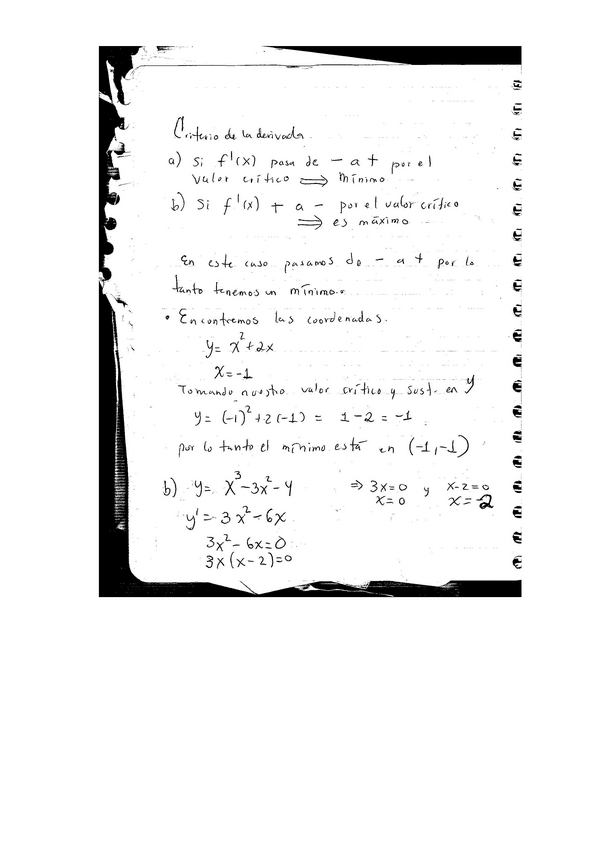 Criterio de la derivada.
a) Si f'(x) pasa de - a + por el
valor crítico ⟹ mínimo
b) Si f'(x) + a - por el valor crítico
⟹ es máximo
En este caso pasamos de - a + por lo
tanto tenemos un mínimo.
• Encontremos las coordenadas.
y= x²+2x
x=-1
Tomando nuestro valor crítico y sust. en y
y= (-1)²+2(-1) = 1-2 = -1
por lo tanto el mínimo está en (-1,-1)
b) y= x³-3x²-4 ⇒ 3x=0 y x-2=0
x=0 x=-2
y'= 3x²-6x
3x²-6x=0
3x(x-2)=0